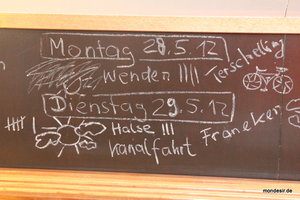 Montag 28.5.12
Wenden |||| Terschelling
Dienstag 29.5.12
Halse ||| Franeker
Kanalfahrt
mondesir.de